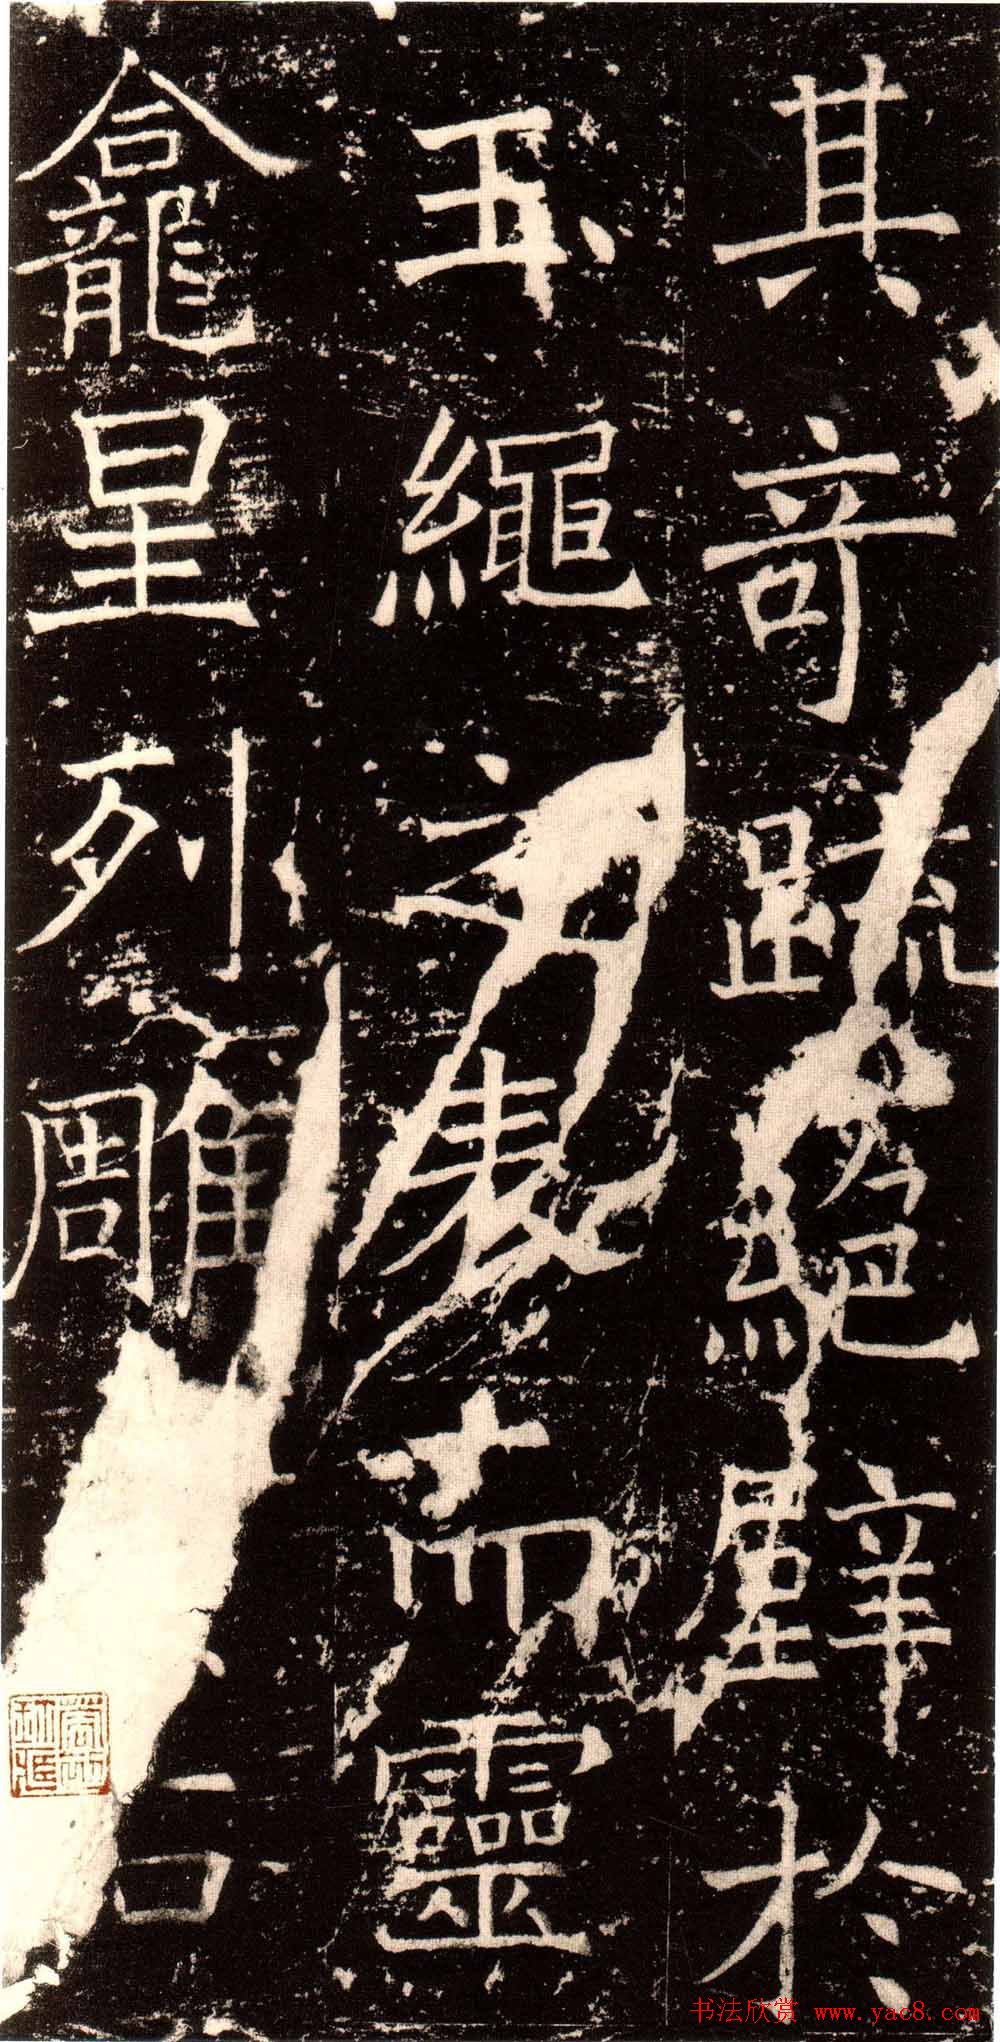 其奇疏絕壁於
玉繩之表而靈
龕星列雕石
书法欣赏 www.yac8.com